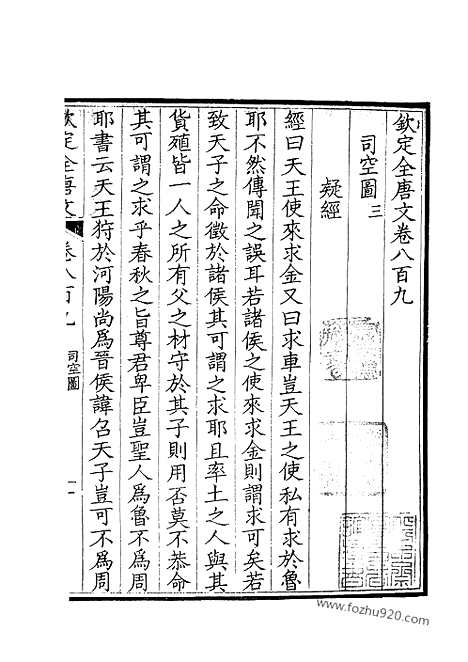 欽定全唐文卷八百九
司空圖 三
疑經
經曰天王使來求金又曰求車豈天王之使私有求於魯
耶不然傳聞之誤耳若諸侯之使來求金則謂求可矣若
致天子之命徵於諸侯其可謂之求耶且率土之人與其
貨殖皆一人之所有父之材守於其子則用否莫不恭命
其可謂之求乎春秋之旨尊君卑臣豈聖人爲魯不爲周
耶書云天王狩於河陽尚爲晉侯諱召天子豈可不爲周
欽定全唐文 卷八百九 司空圖 一
www.fozhu920.com